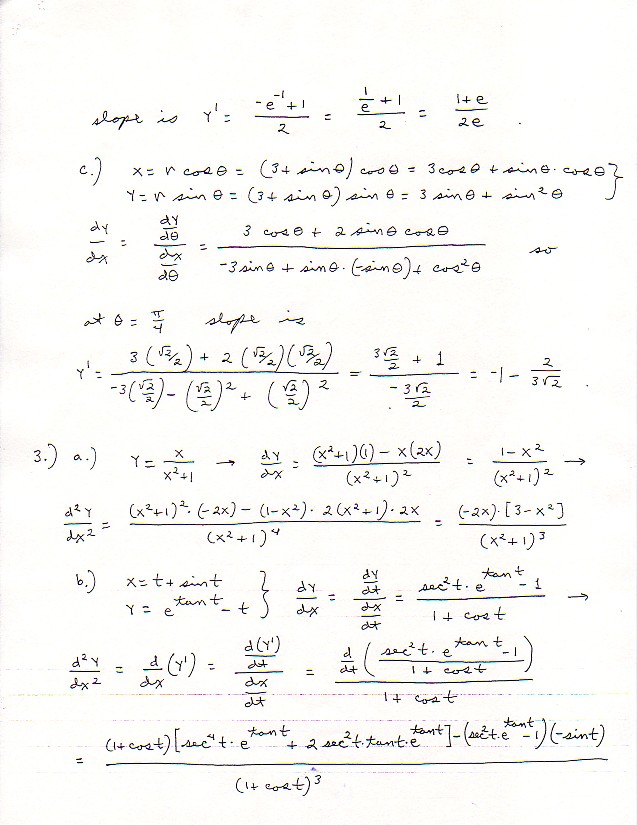 slope is Y' = (-e^{-1}+1)/2 = (1/e + 1)/2 = (1+e)/(2e) .
c.) x = r cosθ = (3+sinθ) cosθ = 3cosθ + sinθ·cosθ }
Y = r sinθ = (3+sinθ) sinθ = 3 sinθ + sin²θ
dY/dx = (dY/dθ)/(dx/dθ) = (3 cosθ + 2 sinθ cosθ)/(-3sinθ + sinθ·(-sinθ) + cos²θ) so
at θ = π/4 slope is
Y' = (3(√2/2) + 2(√2/2)(√2/2))/(-3(√2/2) - (√2/2)² + (√2/2)²) = (3√2/2 + 1)/(-3√2/2) = -1 - 2/(3√2) .
3.) a.) Y = x/(x²+1) → dY/dx = ((x²+1)(1) - x(2x))/(x²+1)² = (1-x²)/(x²+1)² →
d²Y/dx² = ((x²+1)²·(-2x) - (1-x²)·2(x²+1)·2x)/(x²+1)⁴ = ((-2x)·[3-x²])/(x²+1)³
b.) x = t + sint
Y = e^{tant} - t } dY/dx = (dY/dt)/(dx/dt) = (sec²t·e^{tant} - 1)/(1 + cost) →
d²Y/dx² = d/dx (Y') = (d(Y')/dt)/(dx/dt) = (d/dt((sec²t·e^{tant} - 1)/(1 + cost)))/(1 + cost)
= ((1+cost)[sec⁴t·e^{tant} + 2 sec²t·tant·e^{tant}] - (sec²t·e^{tant} - 1)(-sint))/(1 + cost)³